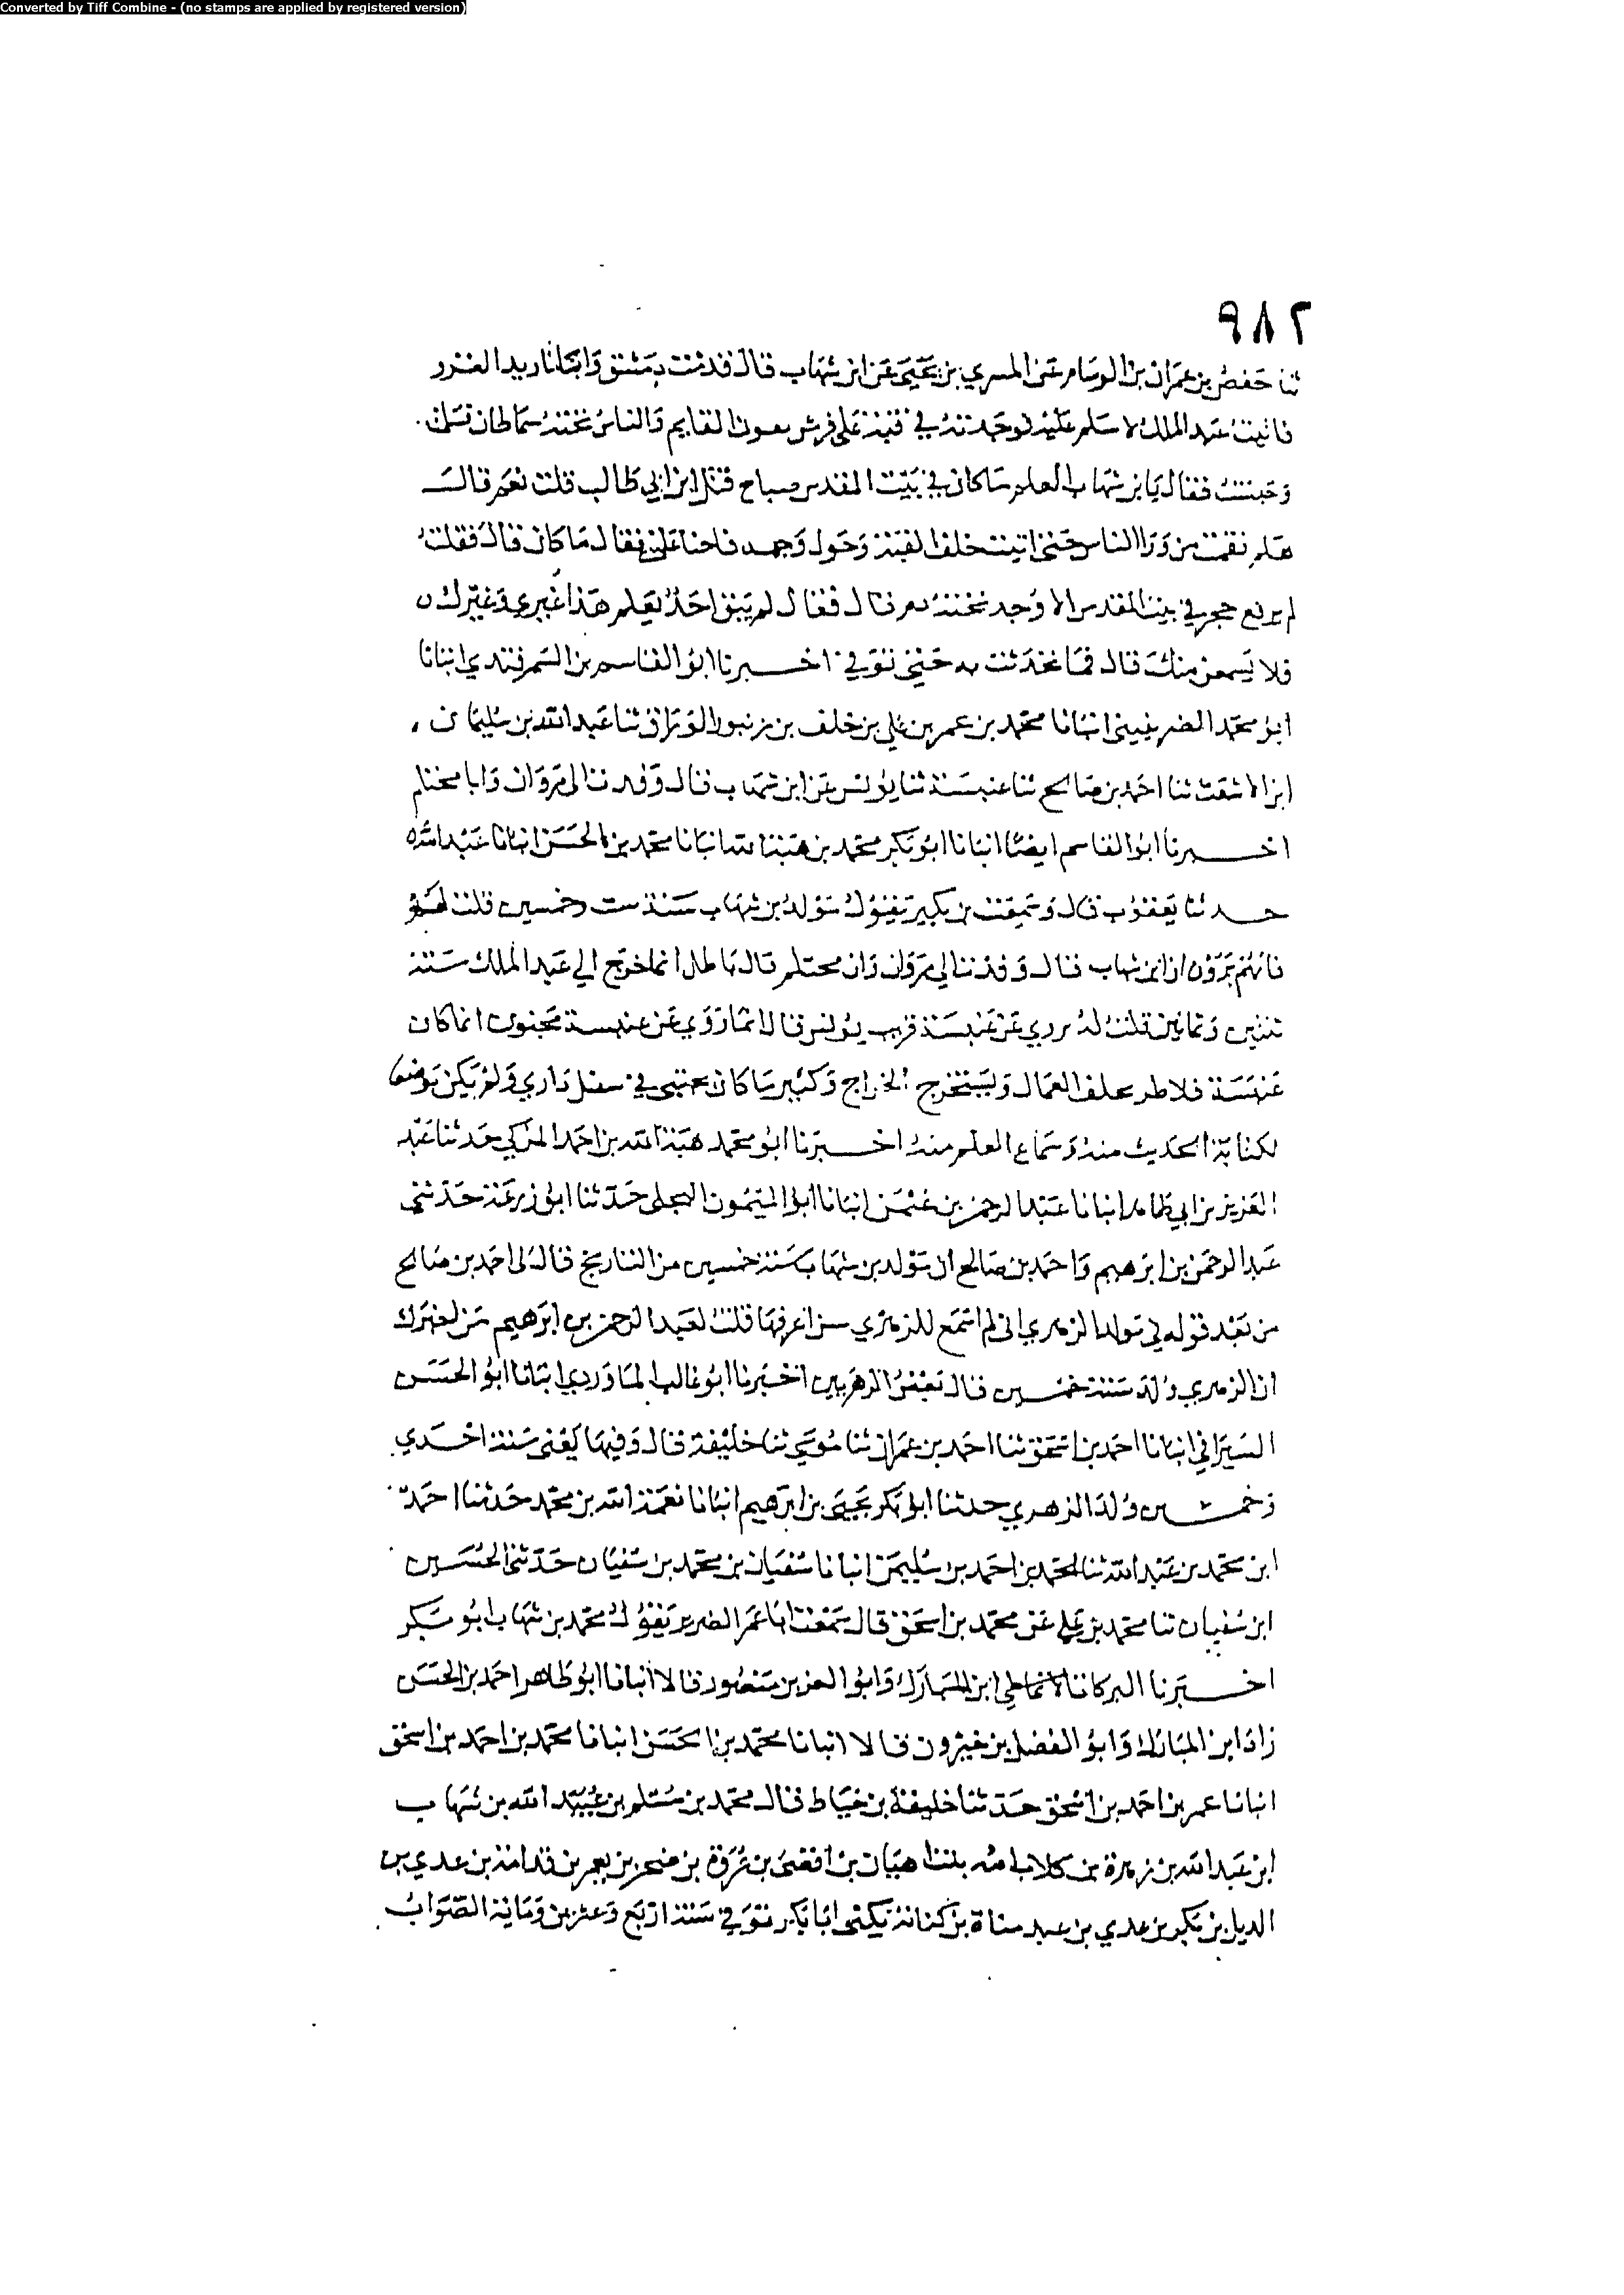 Converted by Tiff Combine - (no stamps are applied by registered version)
٩٨٢
ثنا حفص بن عمران بن الوسام عن السري بن يحيى عن ابن شهاب قال قدمت دمشق وانا اريد الغزو
فاتيت عبد الملك لاسلم عليه فوجدته في قبة على فرش يفوق القايم والناس تحته سماطان فسلمت
وجلست فقال يا بن شهاب اتعلم ما كان في بيت المقدس صباح قتل ابن ابي طالب قلت نعم قال
هلم فقمت من ورا الناس حتى اتيت خلف القبة وحول وجهه فاحنا علي فقال ما كان قال فقلت
لم يرفع حجر في بيت المقدس الا وجد تحته دم قال فقال لم يبق احد يعلم هذا غيري وغيرك
فلا يسمعن منك قال فما تحدثت به حتى توفي اخبرنا ابو القاسم بن السمرقندي انبانا
ابو محمد الصريفيني انبانا محمد بن عمر بن علي بن خلف بن زنبور الوراق ثنا عبد الله بن سليمان
ابن الاشعث ثنا احمد بن صالح ثنا عنبسة ثنا يونس عن ابن شهاب قال وفدنا الى مروان وانا محتلم
اخبرنا ابو القاسم ايضا انبانا ابو بكر محمد بن هبة الله انبانا محمد بن الحسن انبانا عبد الله
حدثنا يعقوب قال وسمعت بن بكير يقول مولد بن شهاب سنة ست وخمسين قلت له
فانهم يروون ان ابن شهاب قال وفدنا الى مروان وان محتلم قال باطل انما خرج الي عبد الملك سنة
ثنتين وثمانين قلت له روي عن عنبسة قريب يونس قال لا انما روي عن عنبسة مجنون انما كان
عنبسة يحلف العمال ويستخرج الخراج وكثير ما كان يجتبي في سفل داري ولم يكن موضعا
لكتابة الحديث منه وسماع العلم منه اخبرنا ابو محمد هبة الله بن احمد المزكي حدثنا عبد
العزيز بن ابي طاهر انبانا عبد الرحمن بن عثمن انبانا ابو الميمون البجلي حدثنا ابو زرعة حدثني
عبد الرحمن بن ابرهيم واحمد بن صالح ان مولد بن شهاب سنة خمسين من التاريخ قال لي احمد بن صالح
من بعد قوله في مولد الزهري اني لم اسمع للزهري سن اعرفها قلت لعبد الرحمن بن ابرهيم من اخبرك
ان الزهري ولد سنة خمسين قال بعض الزهريين اخبرنا ابو غالب الماوردي انبانا ابو الحسن
السيرافي انبانا احمد بن اسحق ثنا احمد بن عمران ثنا موسى ثنا خليفة قال وفيها يعنى سنة احدى
وخمسين ولد الزهري حدثنا ابو بكر يحيى بن ابرهيم انبانا نعمة الله بن محمد حدثنا احمد
ابن محمد بن عبد الله ثنا محمد بن احمد بن سليمن انبانا سفيان بن محمد بن سفيان حدثني الحسين
ابن سفيان ثنا محمد بن علي عن محمد بن اسحق قال سمعت ابا عمر الضرير يقول محمد بن شهاب ابو بكر
اخبرنا البركات الانماطي ابن المبارك وابو العز بن منصور قالا انبانا ابو طاهر احمد بن الحسن
زاد ابن المبارك وابو الفضل بن خيرون قالا انبانا محمد بن الحسن انبانا محمد بن احمد بن اسحق
انبانا عمر بن احمد بن اسحق حدثنا خليفة بن خياط قال محمد بن مسلم بن عبيد الله بن شهاب
ابن عبد الله بن زهرة بن كلاب امه بنت اهبان بن افصى بن عروة بن صخر بن يعمر بن قدامة بن عدي بن
الديل بن بكر بن عدي بن عبد مناة بن كنانة يكنى ابا بكر توفي سنة اربع وعشرين ومائة الصواب